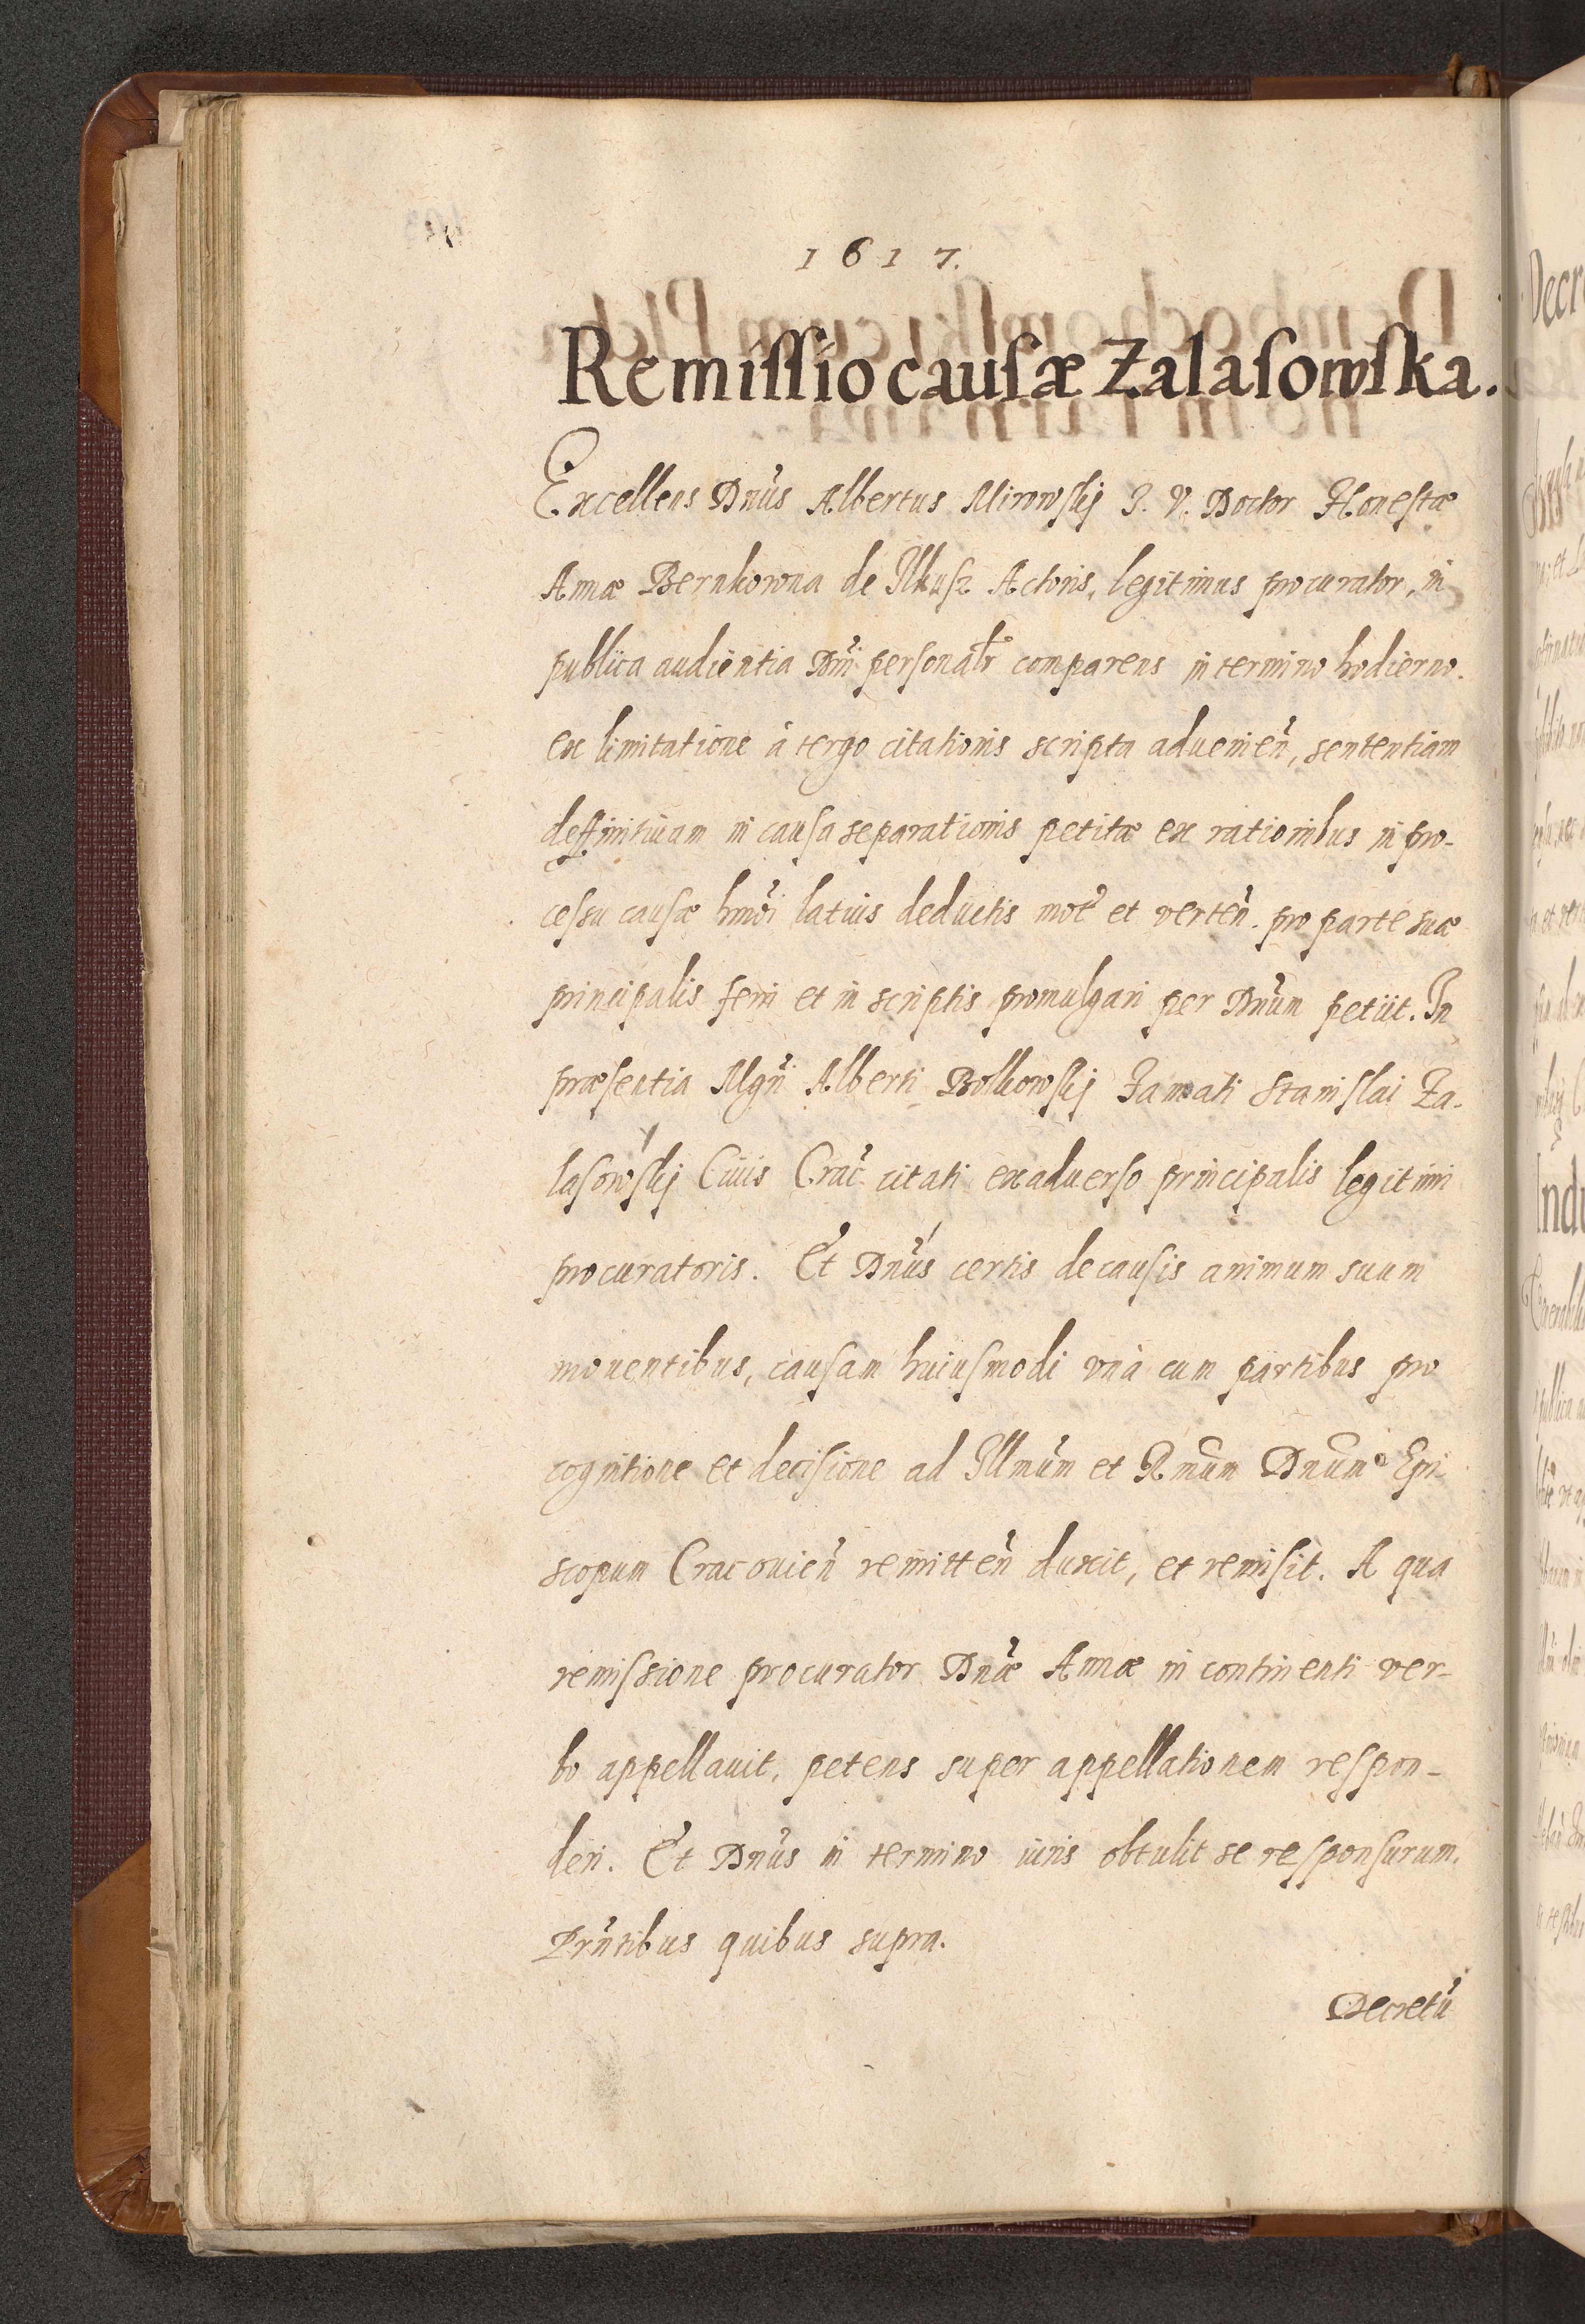 1617.
Remissio causæ Zalasowska.
Excellens Dnus Albertus Mirowskj J. V. Doctor Honestæ
Annæ Bernkowna de Ilkusz Actoris, legitimus procurator, in
publica audientia Dni personalr comparens in termino hodierno.
ex limitatione à tergo citationis scripta aduenien, sententiam
deffinitiuam in causa separationis petitæ ex rationibus in pro-
cessu causæ hmoi latius deductis mot et verten. pro parte suæ
principalis ferri et in scriptis promulgari per Dnum petiit. In
præsentia Mgri Alberti Bolkowskj Famati Stanislai Za-
lasowskj Ciuis Crac citati exaduerso principalis legitimi
procuratoris. Et Dnus certis de causis animum suum
mouentibus, causam huiusmodi vnà cum partibus pro
cognitione et decisione ad Illmum et Rmum Dnum Epi-
scopum Cracouien remitten duxit, et remisit. A qua
remissione procurator Dnæ Annæ in continenti ver-
bo appellauit, petens super appellationem respon-
deri. Et Dnus in termino iuris obtulit se responsurum.
Prntibus quibus supra.
Decretu